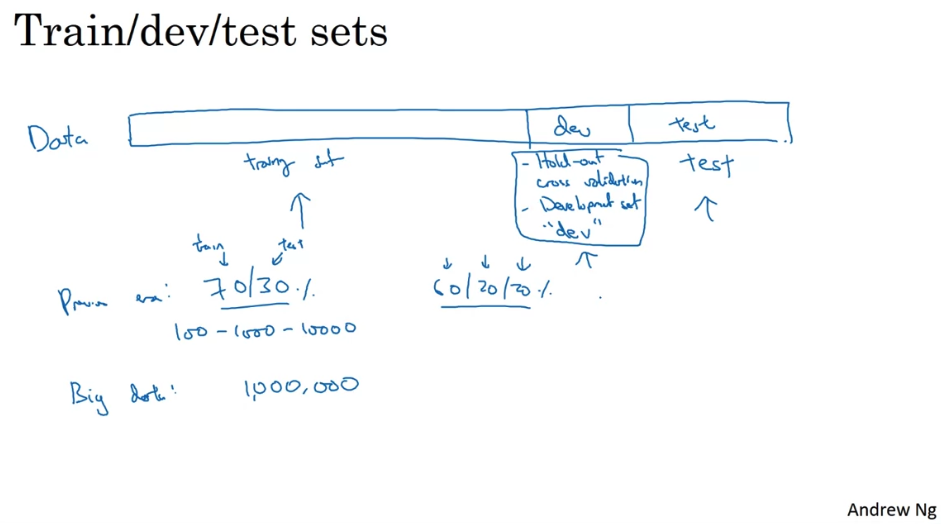 Train/dev/test sets
Data
dev
test
training set
- Hold-out
cross validation
- Development set
"dev"
test
train
test
Previous era:
70/30 %
60/20/20 %
100 - 1000 - 10000
Big data:
1,000,000
Andrew Ng